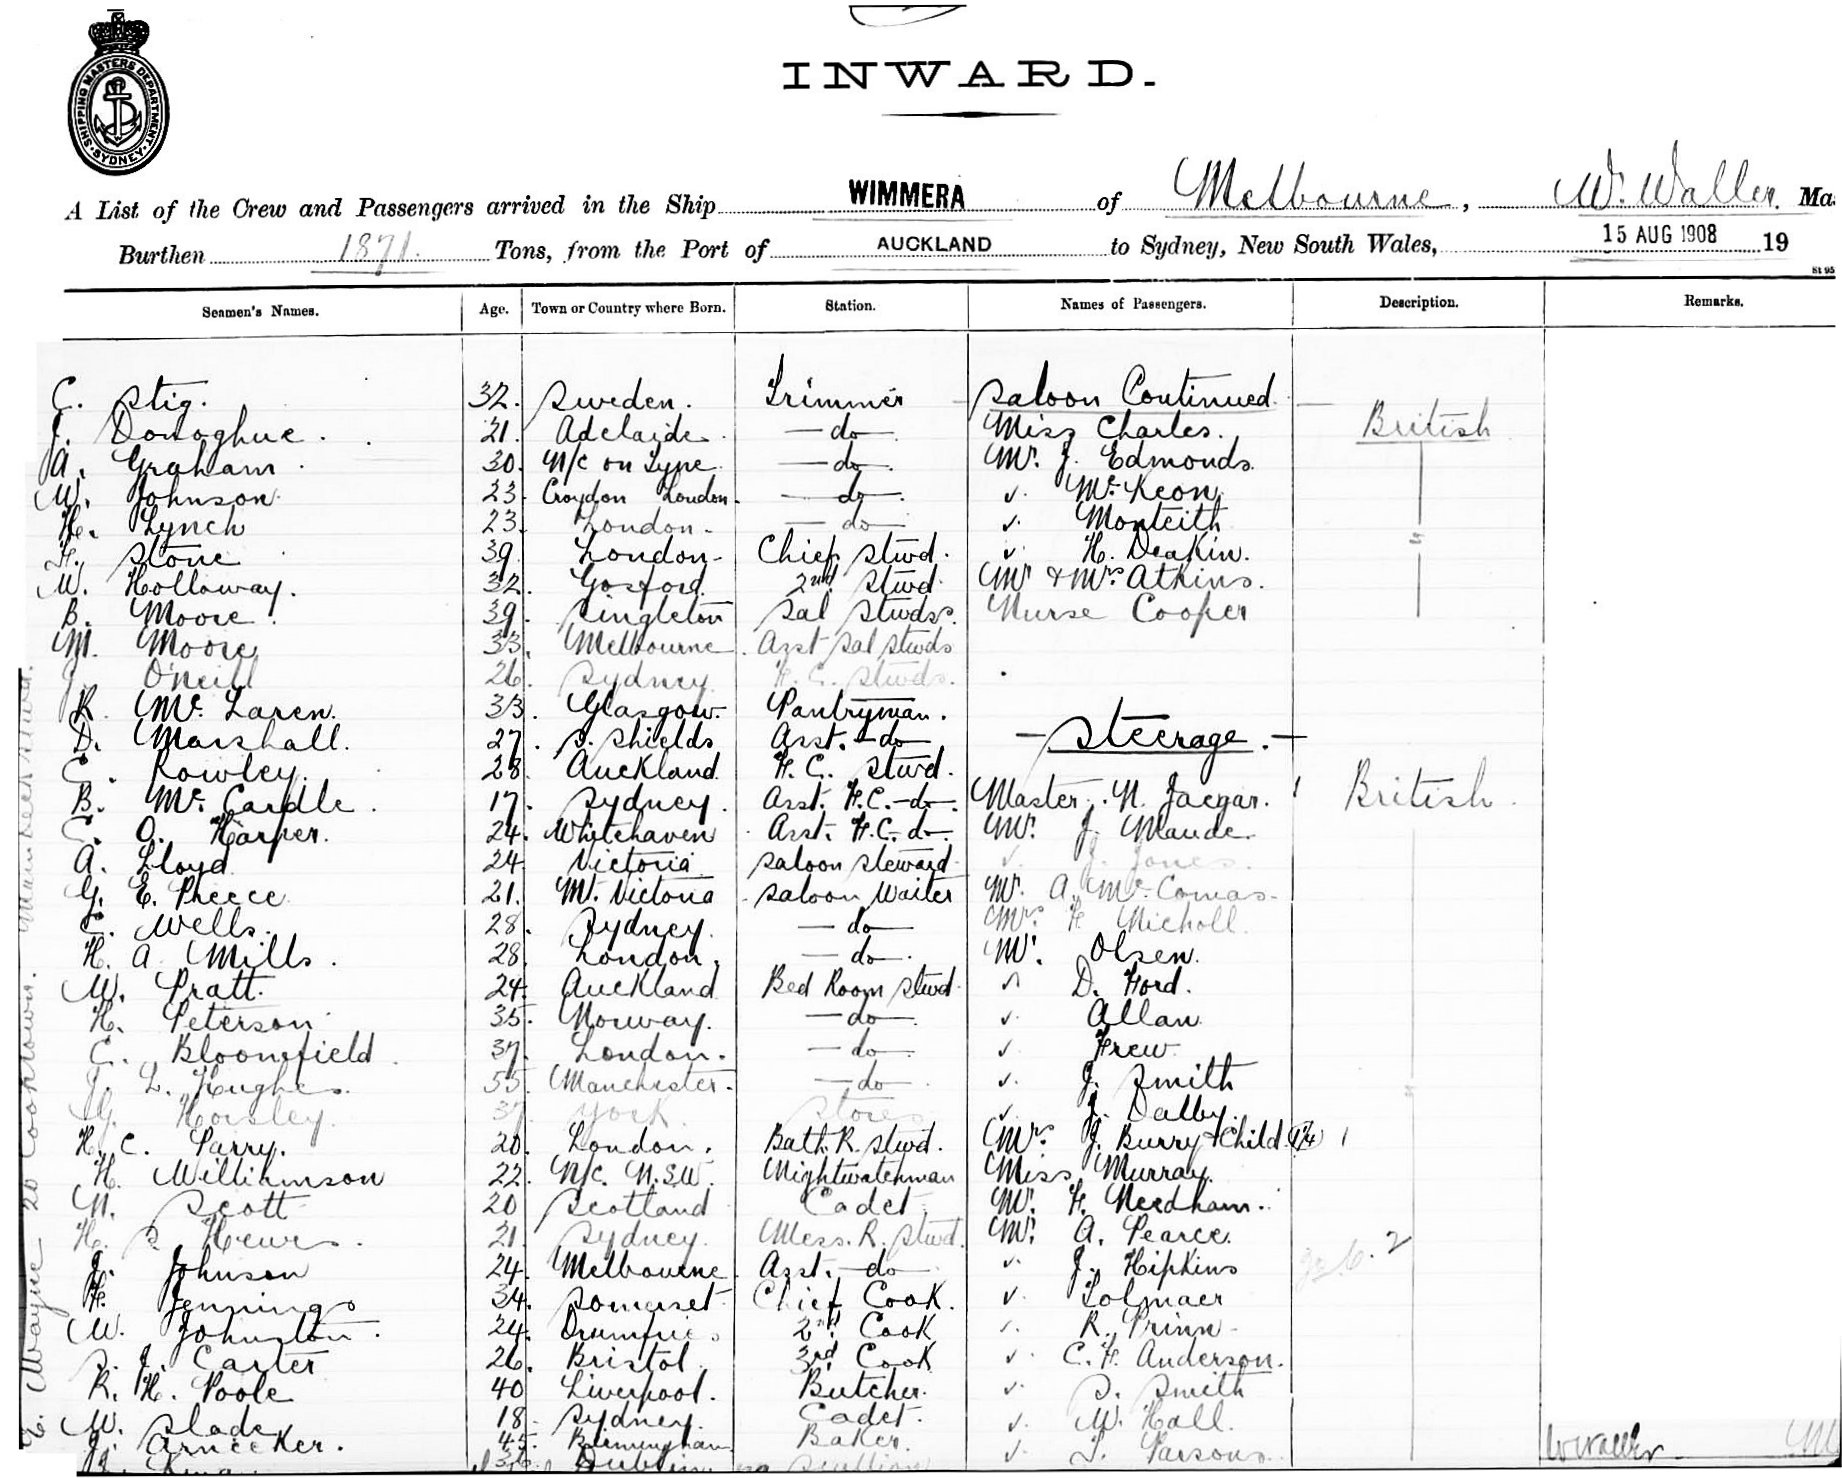 SHIPPING MASTERS DEPARTMENT · SYDNEY ·
INWARD.
A List of the Crew and Passengers arrived in the Ship WIMMERA of Melbourne, W. Waller. Mas
Burthen 1871. Tons, from the Port of AUCKLAND to Sydney, New South Wales, 15 AUG 1908 19
St 95
Seamen's Names. Age. Town or Country where Born. Station. Names of Passengers. Description. Remarks.
C. Stig. 32. Sweden. Trimmer Saloon Continued.
J. Donoghue. 21. Adelaide. — do — Miss Charles. British
A. Graham. 30. N/c on Tyne — do — Mr. J. Edmonds.
W. Johnson 23. Croydon London. — do — ✓. McKeon.
H. Lynch 23. London. — do — ✓. Monteith
Stone 39. London Chief Stwd. ✓. H. Deakin. "
W. Holloway. 32. Gosford. 2nd Stwd Mr & Mrs Atkins.
B. Moore. 39. Singleton Sal Stwdss. Nurse Cooper
M. Moore 33. Melbourne. Asst Sal Stwds
J. O'Neill 26. Sydney. F. C. Stwds.
R. McLaren. 33. Glasgow. Pantryman.
D. Marshall. 27. S. Shields Asst. — do — — Steerage. —
C. Rowley. 28. Auckland. F. C. Stwd.
B. McCardle. 17. Sydney. Asst. F.C. — do — Master. N. Jaegar. 1 British.
C. O. Harper. 24. Whitehaven Asst. F.C. — do — Mr. J. Maude.
A. Lloyd 24. Victoria Saloon Steward ✓. J. Jones.
G. E. Preece 21. Mt. Victoria Saloon Waiter Mr. A. McComas.
C. Wells. 28. Sydney. — do — Mrs H Nicholl.
H. A. Mills. 28. London. — do — Mr. Olsen.
W. Pratt. 24. Auckland Bed Room Stwd ✓ D. Ford.
H. Peterson 35. Norway. — do — ✓. Allan
C. Bloomfield. 37. London. — do — ✓. Frew
J. L. Hughes. 55. Manchester. — do — ✓. J. Smith "
G. Horsley 37 York Stores ✓. J. Dalby.
H. C. Parry. 20. London. Bath. R. Stwd. Mrs. J. Burry & Child 1
H. Williamson 22. N/c. N.S.W. Nightwatchman Miss Murray.
N. Scott 20 Scotland Cadet Mr. F. Needham.
H. S. Hewes. 21. Sydney. Mess. R. Stwd. Mr. A. Pearce.
J. Johnson 24. Melbourne. Asst. — do — ✓. J. Hipkins
F. Jennings 34. Somerset Chief Cook. ✓. Tolmaer
W. Johnston. 24. Dumfries 2nd Cook ✓. R. Prinn
S. J. Carter 26. Bristol. 3rd Cook ✓. C. H. Anderson.
R. H. Poole 40 Liverpool. Butcher. ✓. S. Smith
W. Slade 18. Sydney. Cadet. ✓. W. Hall.
J. Arnecker. 45. Birmingham Baker. ✓. T. Parsons. W Waller M
King 36 Dublin Scullion
E. Wayne 20 Cooktown.